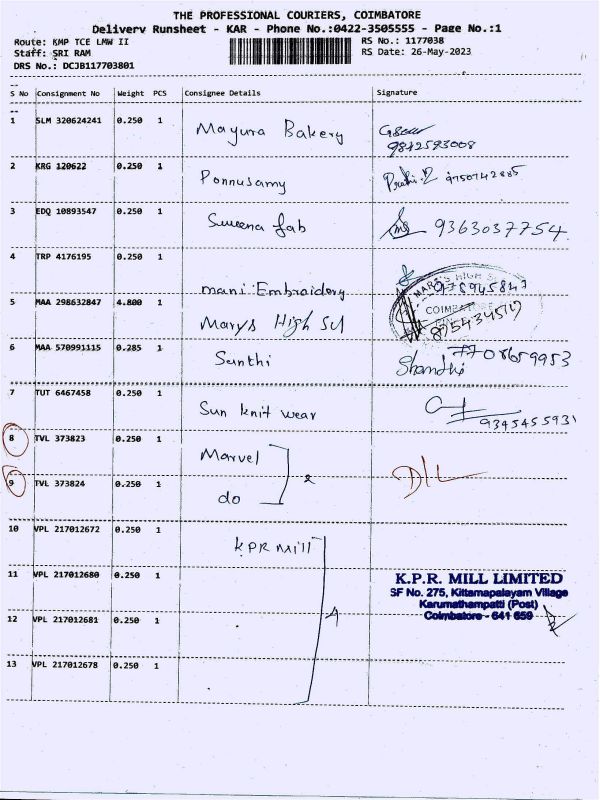 THE PROFESSIONAL COURIERS, COIMBATORE
Delivery Runsheet - KAR - Phone No.:0422-3505555 - Page No.:1
Route: KMP TCE LMW II RS No.: 1177038
Staff: SRI RAM RS Date: 26-May-2023
DRS No.: DCJB117703801
S No Consignment No Weight PCS Consignee Details Signature
1 SLM 320624241 0.250 1 Mayura Bakery
9842593008
2 KRG 120622 0.250 1 Ponnusamy 9750742885
3 EDQ 10893547 0.250 1 Sweena fab 9363037754
4 TRP 4176195 0.250 1 mani Embraidery
5 MAA 298632847 4.800 1 Marys High Scl 8754345717
6 MAA 570991115 0.285 1 Santhi Shandhi 7708659953
7 TUT 6467458 0.250 1 Sun knit wear 9345455931
8 TVL 373823 0.250 1 Marvel
9 TVL 373824 0.250 1 do 2 D/L
10 VPL 217012672 0.250 1 KPR Mill
11 VPL 217012680 0.250 1 K.P.R. MILL LIMITED
SF No. 275, Kittamapalayam Village
Karumathampatti (Post)
12 VPL 217012681 0.250 1 4 Coimbatore - 641 659
13 VPL 217012678 0.250 1